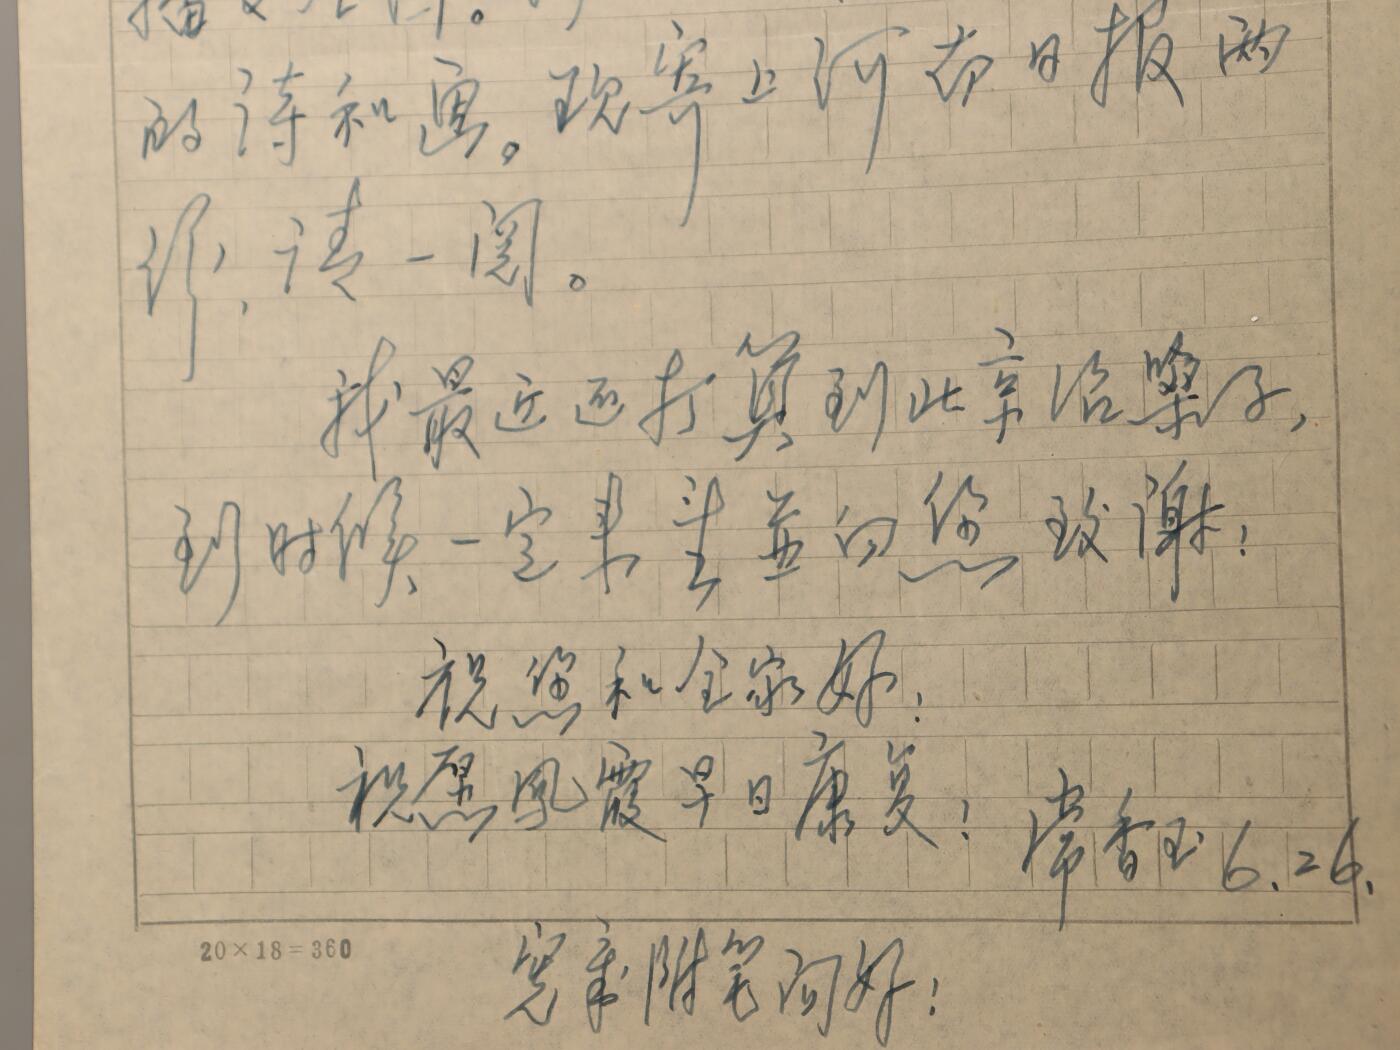 的诗和画。现寄上河南日报两
份,请一阅。
我最近还打算到北京治嗓子,
到时候一定来登並向您致谢!
祝您和全家好!
祝愿凤霞早日康复! 常香玉 6.26.
20×18=360
宪章附笔问好!